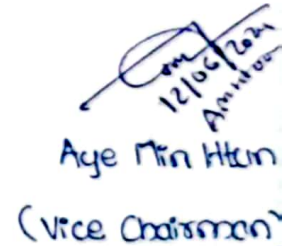 12/06/2024
Aye Min Htun
(Vice Chairman)